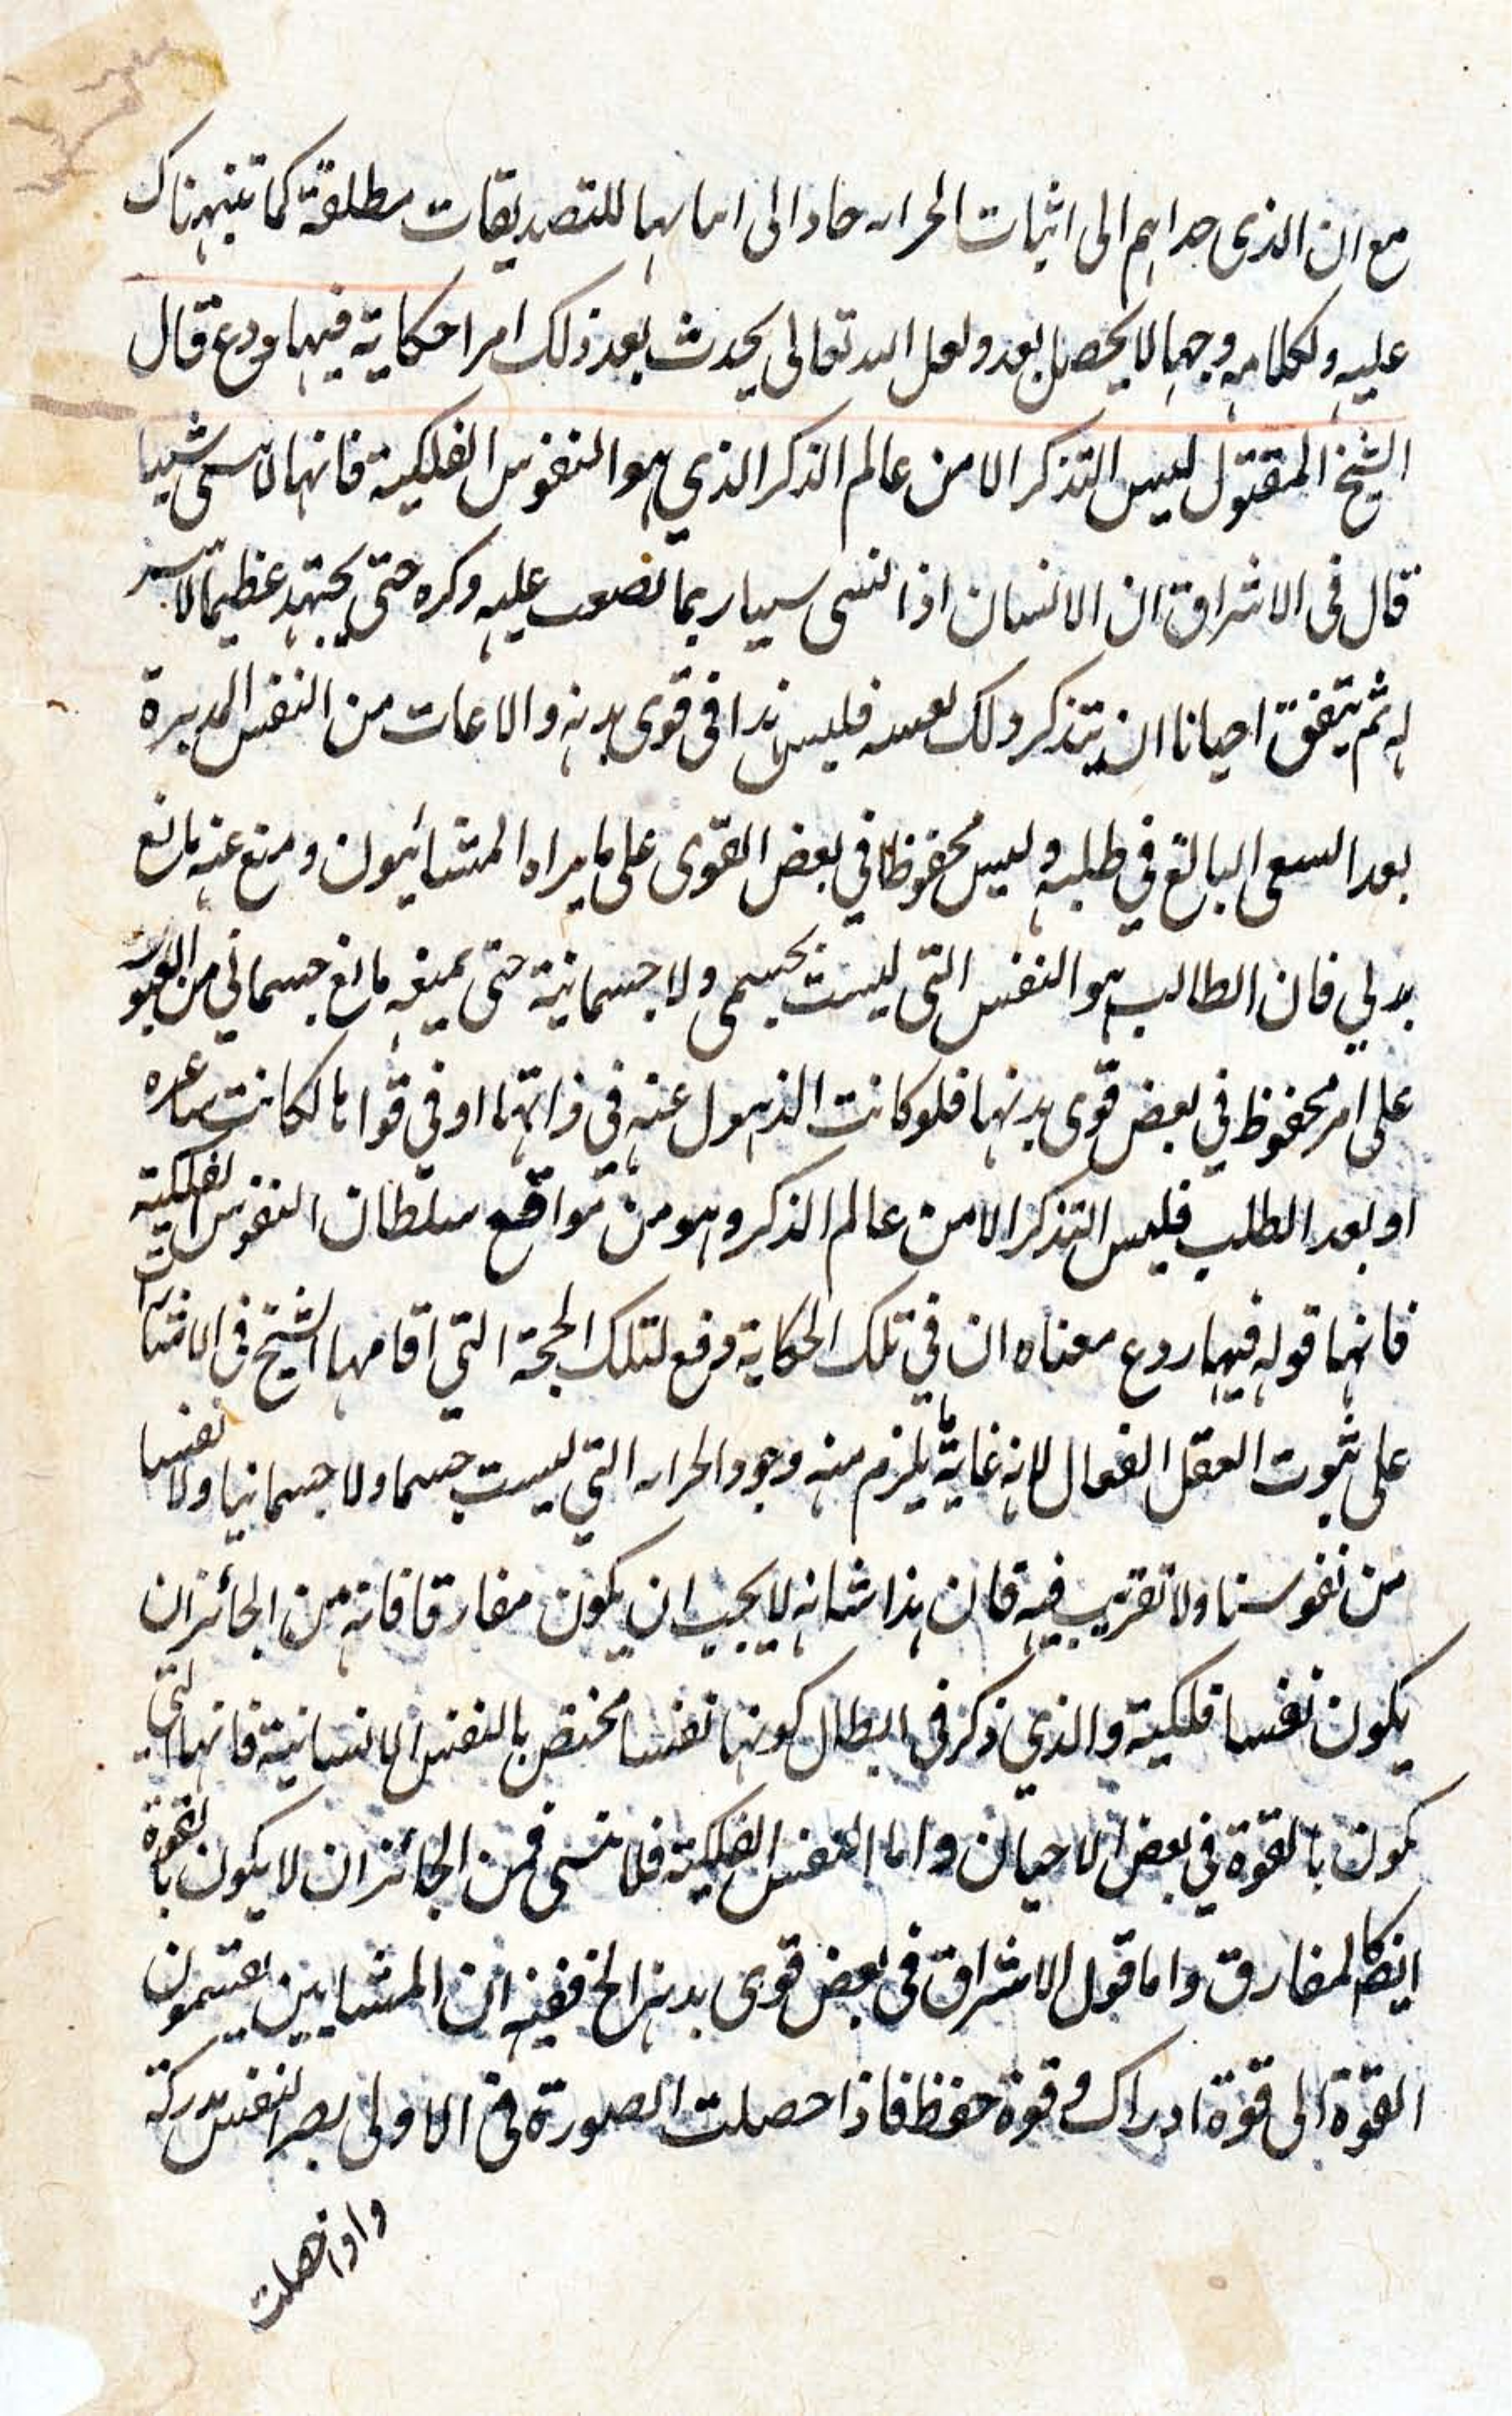 مع ان الذى حداهم الى اثبات الخزانه حاد الى اثباتها للتصديقات مطلقة كما تنبهناك
عليه ولكلامه وجها لا يحصل بعد ولعل الله تعالى يحدث بعد ذلك امرا حكاية فيها ودع قال
الشيخ المقتول ليس التذكر الا من عالم الذكر الذي هو النفوس الفلكية فانها لا تنسى شيئا
قال فى الاشراق ان الانسان اذا نسى شيئا ربما تصعب عليه ذكره حتى يجتهد عظيما لا يتيسر
له ثم يتفق احيانا ان يتذكر ذلك بعينه فليس هذا فى قوى بدنه والا ما غاب من النفس المدبرة
بعد السعى البالغ في طلبه وليس محفوظا في بعض القوى على ما يراه المشائيون ومنع عنه مانع
بدني فان الطالب هو النفس التى ليست بجسمى ولا جسمانية حتى يمنعه مانع جسماني من العبور
على امر محفوظ في بعض قوى بدنها فلو كانت الذهول عنه فى ذاتها او في قواها لكانت شاعره
او بعد الطلب فليس التذكر الا من عالم الذكر وهو من مواقع سلطان النفوس الفلكية
فانها قوله فيها ردع معناه ان في تلك الحكاية دفع لتلك الحجة التي اقامها الشيخ فى الاشارات
على ثبوت العقل الفعال لانه غاية ما يلزم منه وجود الخزانه التي ليست جسما ولا جسمانيا ولا نفسا
من نفوسنا ولا تقريب فيه فان هذا شانه لا يجب ان يكون مفارقا فانه من الجائز ان
يكون نفسا فلكية والذي ذكر فى ابطال كونها نفسا مختص بالنفس الانسانية فانها التي
تكون بالقوة في بعض الاحيان واما النفس الفلكية فلا تنسى فمن الجائز ان لا يكون بالقوة
ايضا كالمفارق واما قول الاشراق فى بعض قوى بدنه الخ ففيه ان المشايين يقسمون
القوة الى قوة ادراك و قوة حفظ فاذا حصلت الصورة فى الاولى يصير النفس مدركة
واذا حصلت